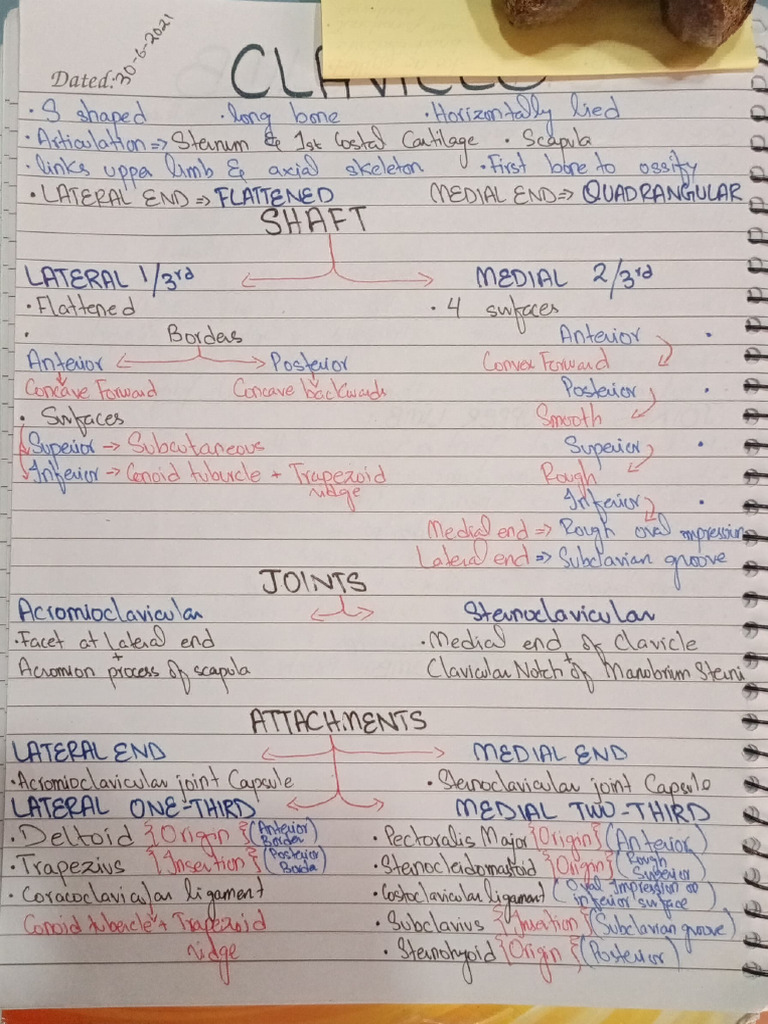 Dated: 30-6-2021
CLAVICLE
· S shaped · long bone · Horizontally lied
· Articulation => Sternum & 1st Costal Cartilage · Scapula
· links upper limb & axial skeleton · First bone to ossify
· LATERAL END => FLATTENED MEDIAL END => QUADRANGULAR
SHAFT
LATERAL 1/3rd MEDIAL 2/3rd
· Flattened · 4 surfaces
Borders Anterior
Anterior Posterior Convex Forward
Concave Forward Concave backwards Posterior
· Surfaces Smooth
Superior → Subcutaneous Superior
Inferior → Conoid tubercle + Trapezoid Rough
ridge Inferior
Medial end => Rough oval impression
Lateral end => Subclavian groove
JOINTS
Acromioclavicular Sternoclavicular
· Facet at Lateral end · Medial end of Clavicle
+ +
Acromion process of scapula Clavicular Notch of Manobrium Sterni
ATTACHMENTS
LATERAL END MEDIAL END
· Acromioclavicular joint Capsule · Sternoclavicular joint Capsule
LATERAL ONE-THIRD MEDIAL TWO-THIRD
· Deltoid {Origin} (Anterior Border) · Pectoralis Major {Origin} (Anterior)
· Trapezius {Insertion} (Posterior Border) · Sternocleidomastoid {Origin} (Rough Superior)
· Coracoclavicular ligament · Costoclavicular ligament (Oval Impression on inferior surface)
Conoid tubercle + Trapezoid · Subclavius {Insertion} (Subclavian groove)
ridge · Sternohyoid {Origin} (Posterior)